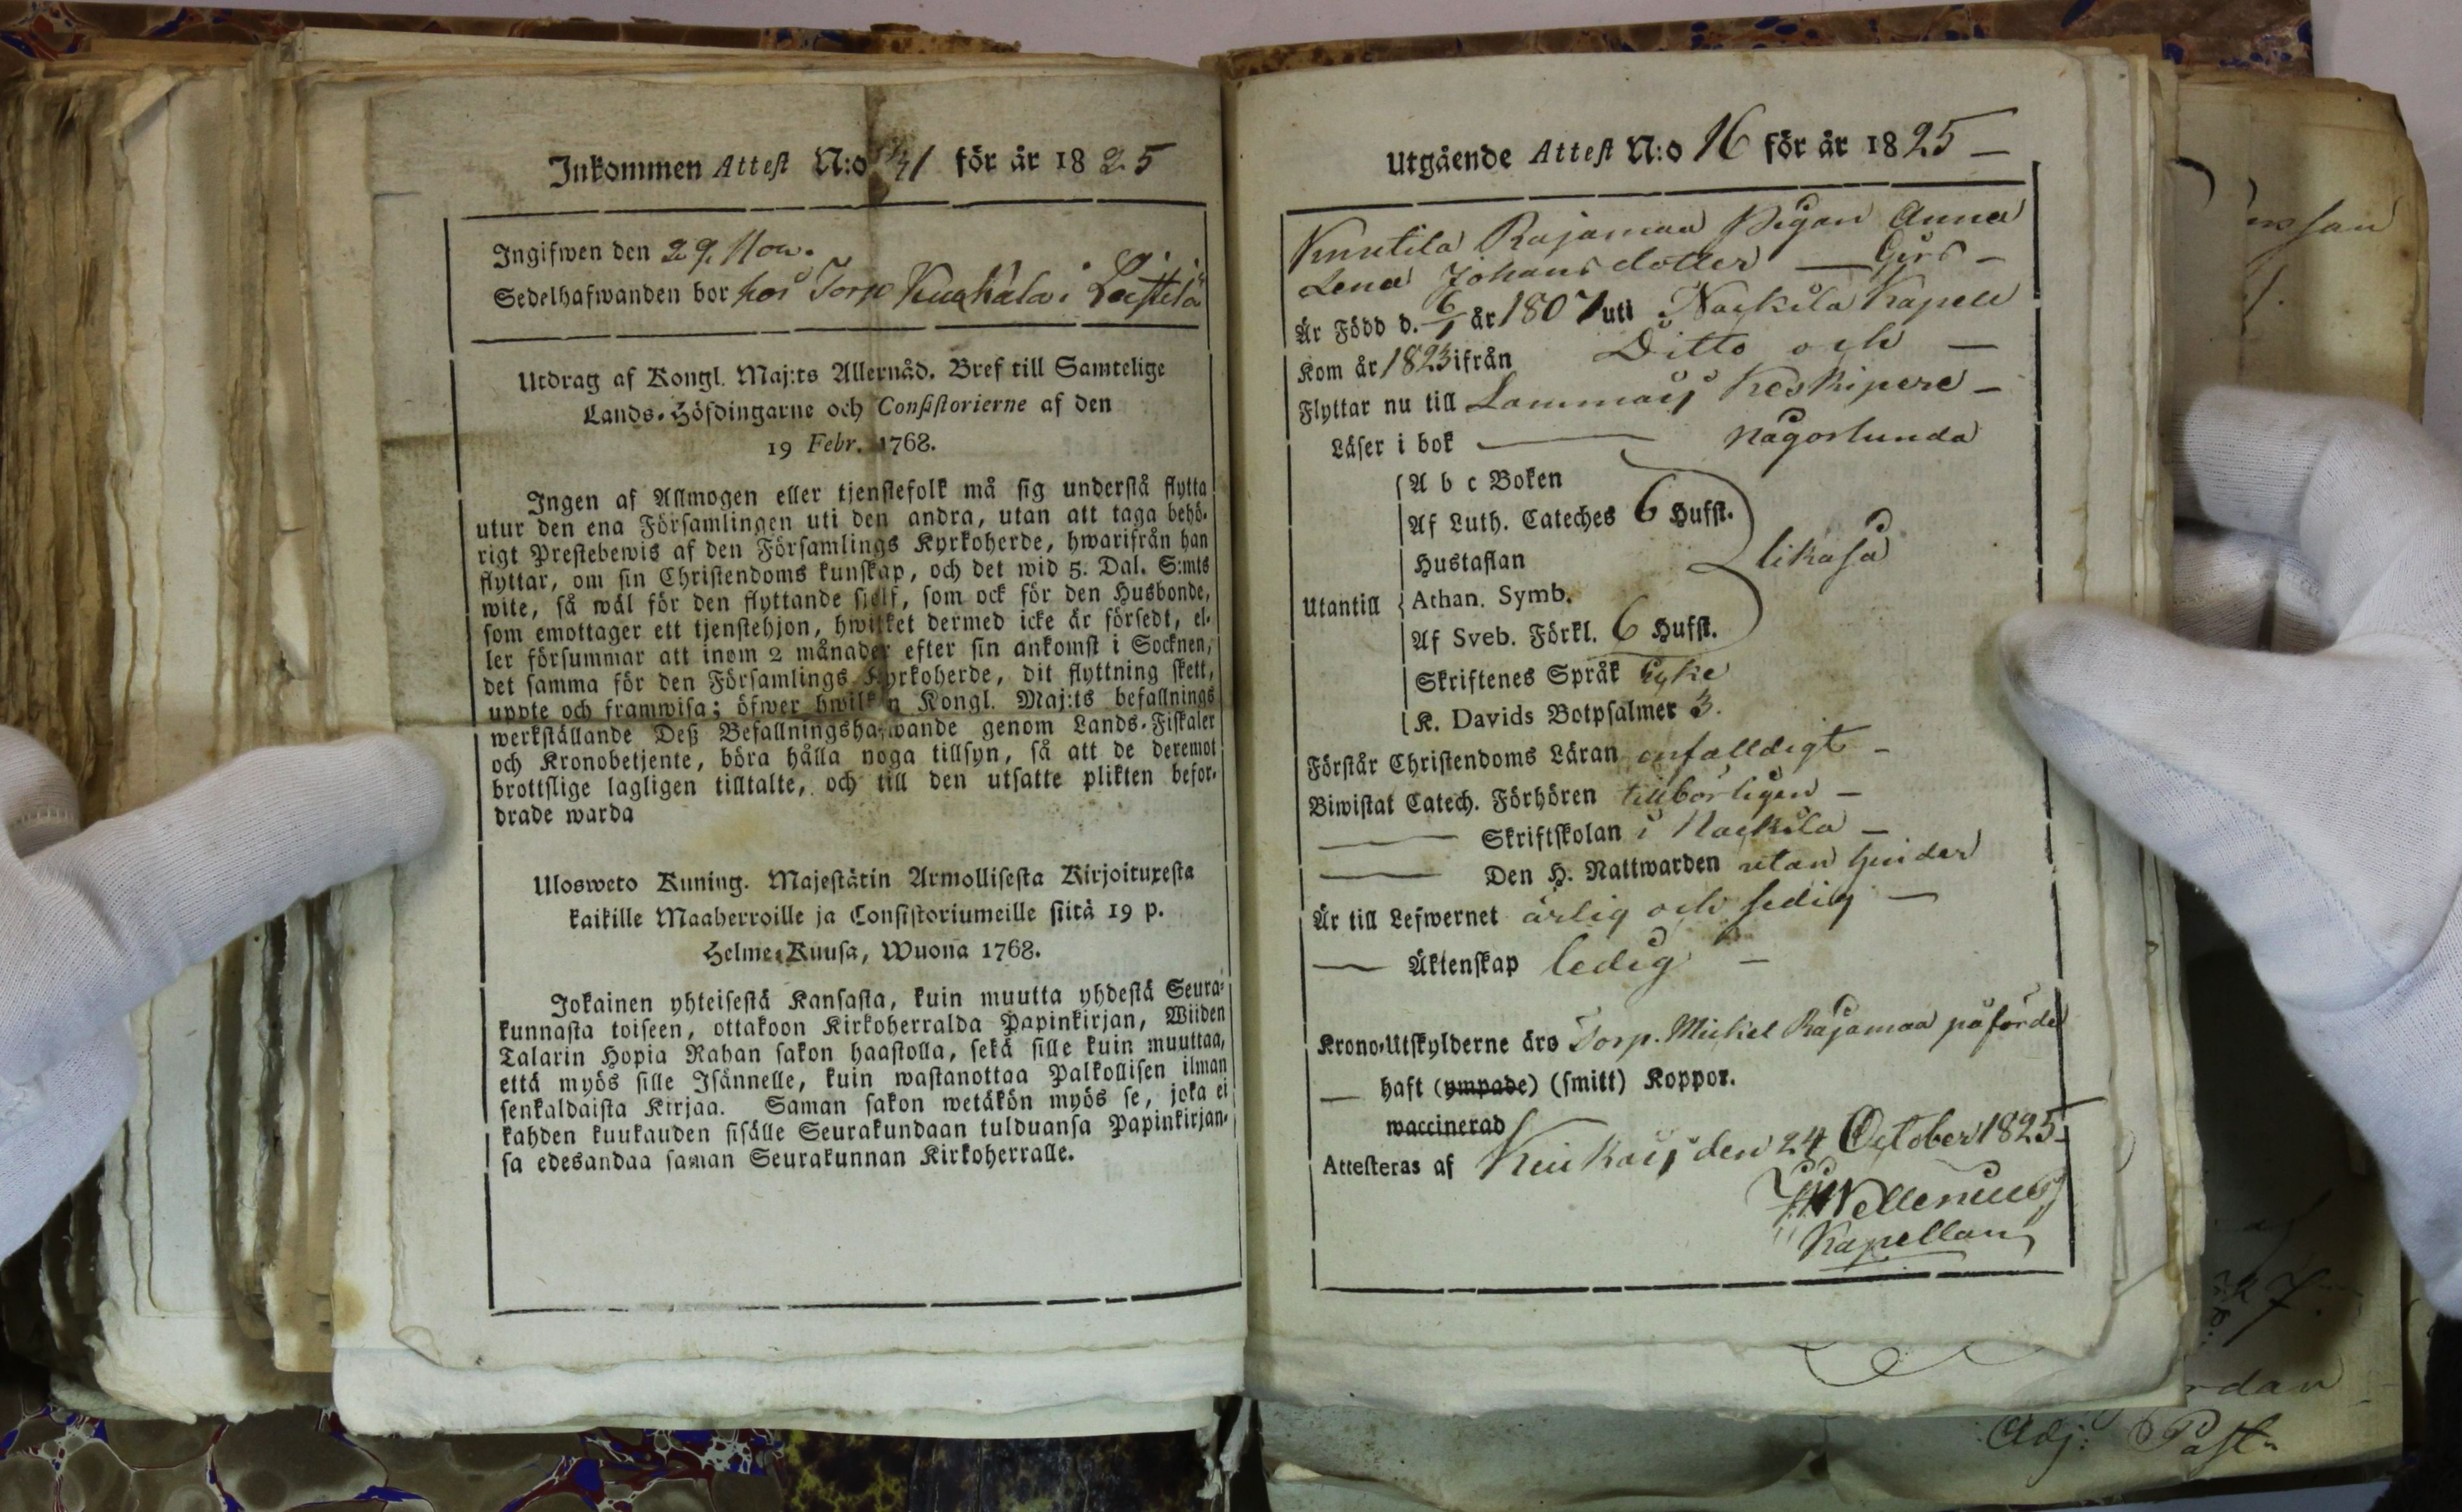 Inkommen Attest N:o 41 för år 1825
Ingifwen den 29. Nov.
Sedelhafwanden bor hos Torp i Leistilä
Utdrag af Kongl. Maj:ts Allernåd. Bref till Samtelige
Lands-Höfdingarne och Consistorierne af den
19 Febr. 1768.
Ingen af Allmogen eller tjenstefolk må sig understå flytta
utur den ena Församlingen uti den andra, utan att taga behö-
rigt Prestebewis af den Församlings Kyrkoherde, hwarifrån han
flyttar, om sin Christendoms kunskap, och det wid 5. Dal. S:mts
wite, så wäl för den flyttande sjelf, som ock för den Husbonde,
som emottager ett tjenstehjon, hwilket dermed icke är försedt, el-
ler försummar att inom 2 månader efter sin ankomst i Socknen,
det samma för den Församlings Kyrkoherde, dit flyttning skett,
uppte och framwisa; öfwer hwilken Kongl. Maj:ts befallnings
werkställande Deß Befallningshafwande genom Lands-Fiskaler
och Kronobetjente, böra hålla noga tillsyn, så att de deremot
brottslige lagligen tilltalte, och till den utsatte plikten befor-
drade warda
Ulosweto Kuning. Majestätin Armollisesta Kirjoituxesta
kaikille Maaherroille ja Consistoriumeille siitä 19 p.
Helme-Kuusa, Wuona 1768.
Jokainen yhteisestä Kansasta, kuin muutta yhdestä Seura-
kunnasta toiseen, ottakoon Kirkoherralda Papinkirjan, Wiiden
Talarin Hopia Rahan sakon haastolla, sekä sille kuin muuttaa,
että myös sille Isännelle, kuin wastanottaa Palkollisen ilman
senkaldaista Kirjaa. Saman sakon wetäkön myös se, joka ei
kahden kuukauden sisälle Seurakundaan tulduansa Papinkirjan-
sa edesandaa saman Seurakunnan Kirkoherralle.
Utgående Attest N:o 16 för år 1825 —
Knutila Rajamaa Pigan Anna
Lena Johansdotter —
Är Född d. 6/1 år 1807 uti Nackila Kapell
Kom år 1823 ifrån Ditto och —
Flyttar nu till Lammais Keskipere —
Läser i bok — någorlunda
A b c Boken
Af Luth. Cateches 6 Hufst.
Hustaflan likaså
Utantill Athan. Symb.
Af Sveb. Förkl. 6 Hufst.
Skriftenes Språk Cyke
K. Davids Botpsalmer 3.
Förstår Christendoms Läran enfalldigt —
Biwistat Catech. Förhören tillbörligen —
— Skriftskolan i Nackila —
— Den H. Nattwarden utan hinder
Är till Lefwernet ärlig och sedig —
— Äktenskap ledig —
Krono-Utskylderne äro Torp. Michel Rajamaa påförde
— haft (ympade) (smitt) Koppor.
waccinerad
Attesteras af Keikois den 24 October 1825
Wellenius
Kapellan
rdan
Adj: Past.